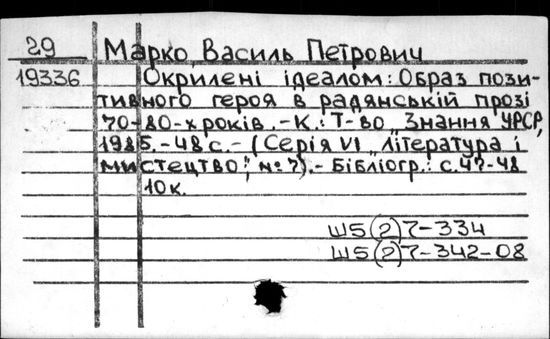 29 Марко, Василь Петрович
19336 Окрилені ідеалом: Образ пози-
тивного героя в радянській прозі
70-80-х років. - К.: Т-во „Знання" УРСР,
1985. - 48 с. - (Серія VI „Література і
мистецтво"; №7). - Бібліогр.: с. 47-48
10к.
Ш5(2)7-334
Ш5(2)7-342-08